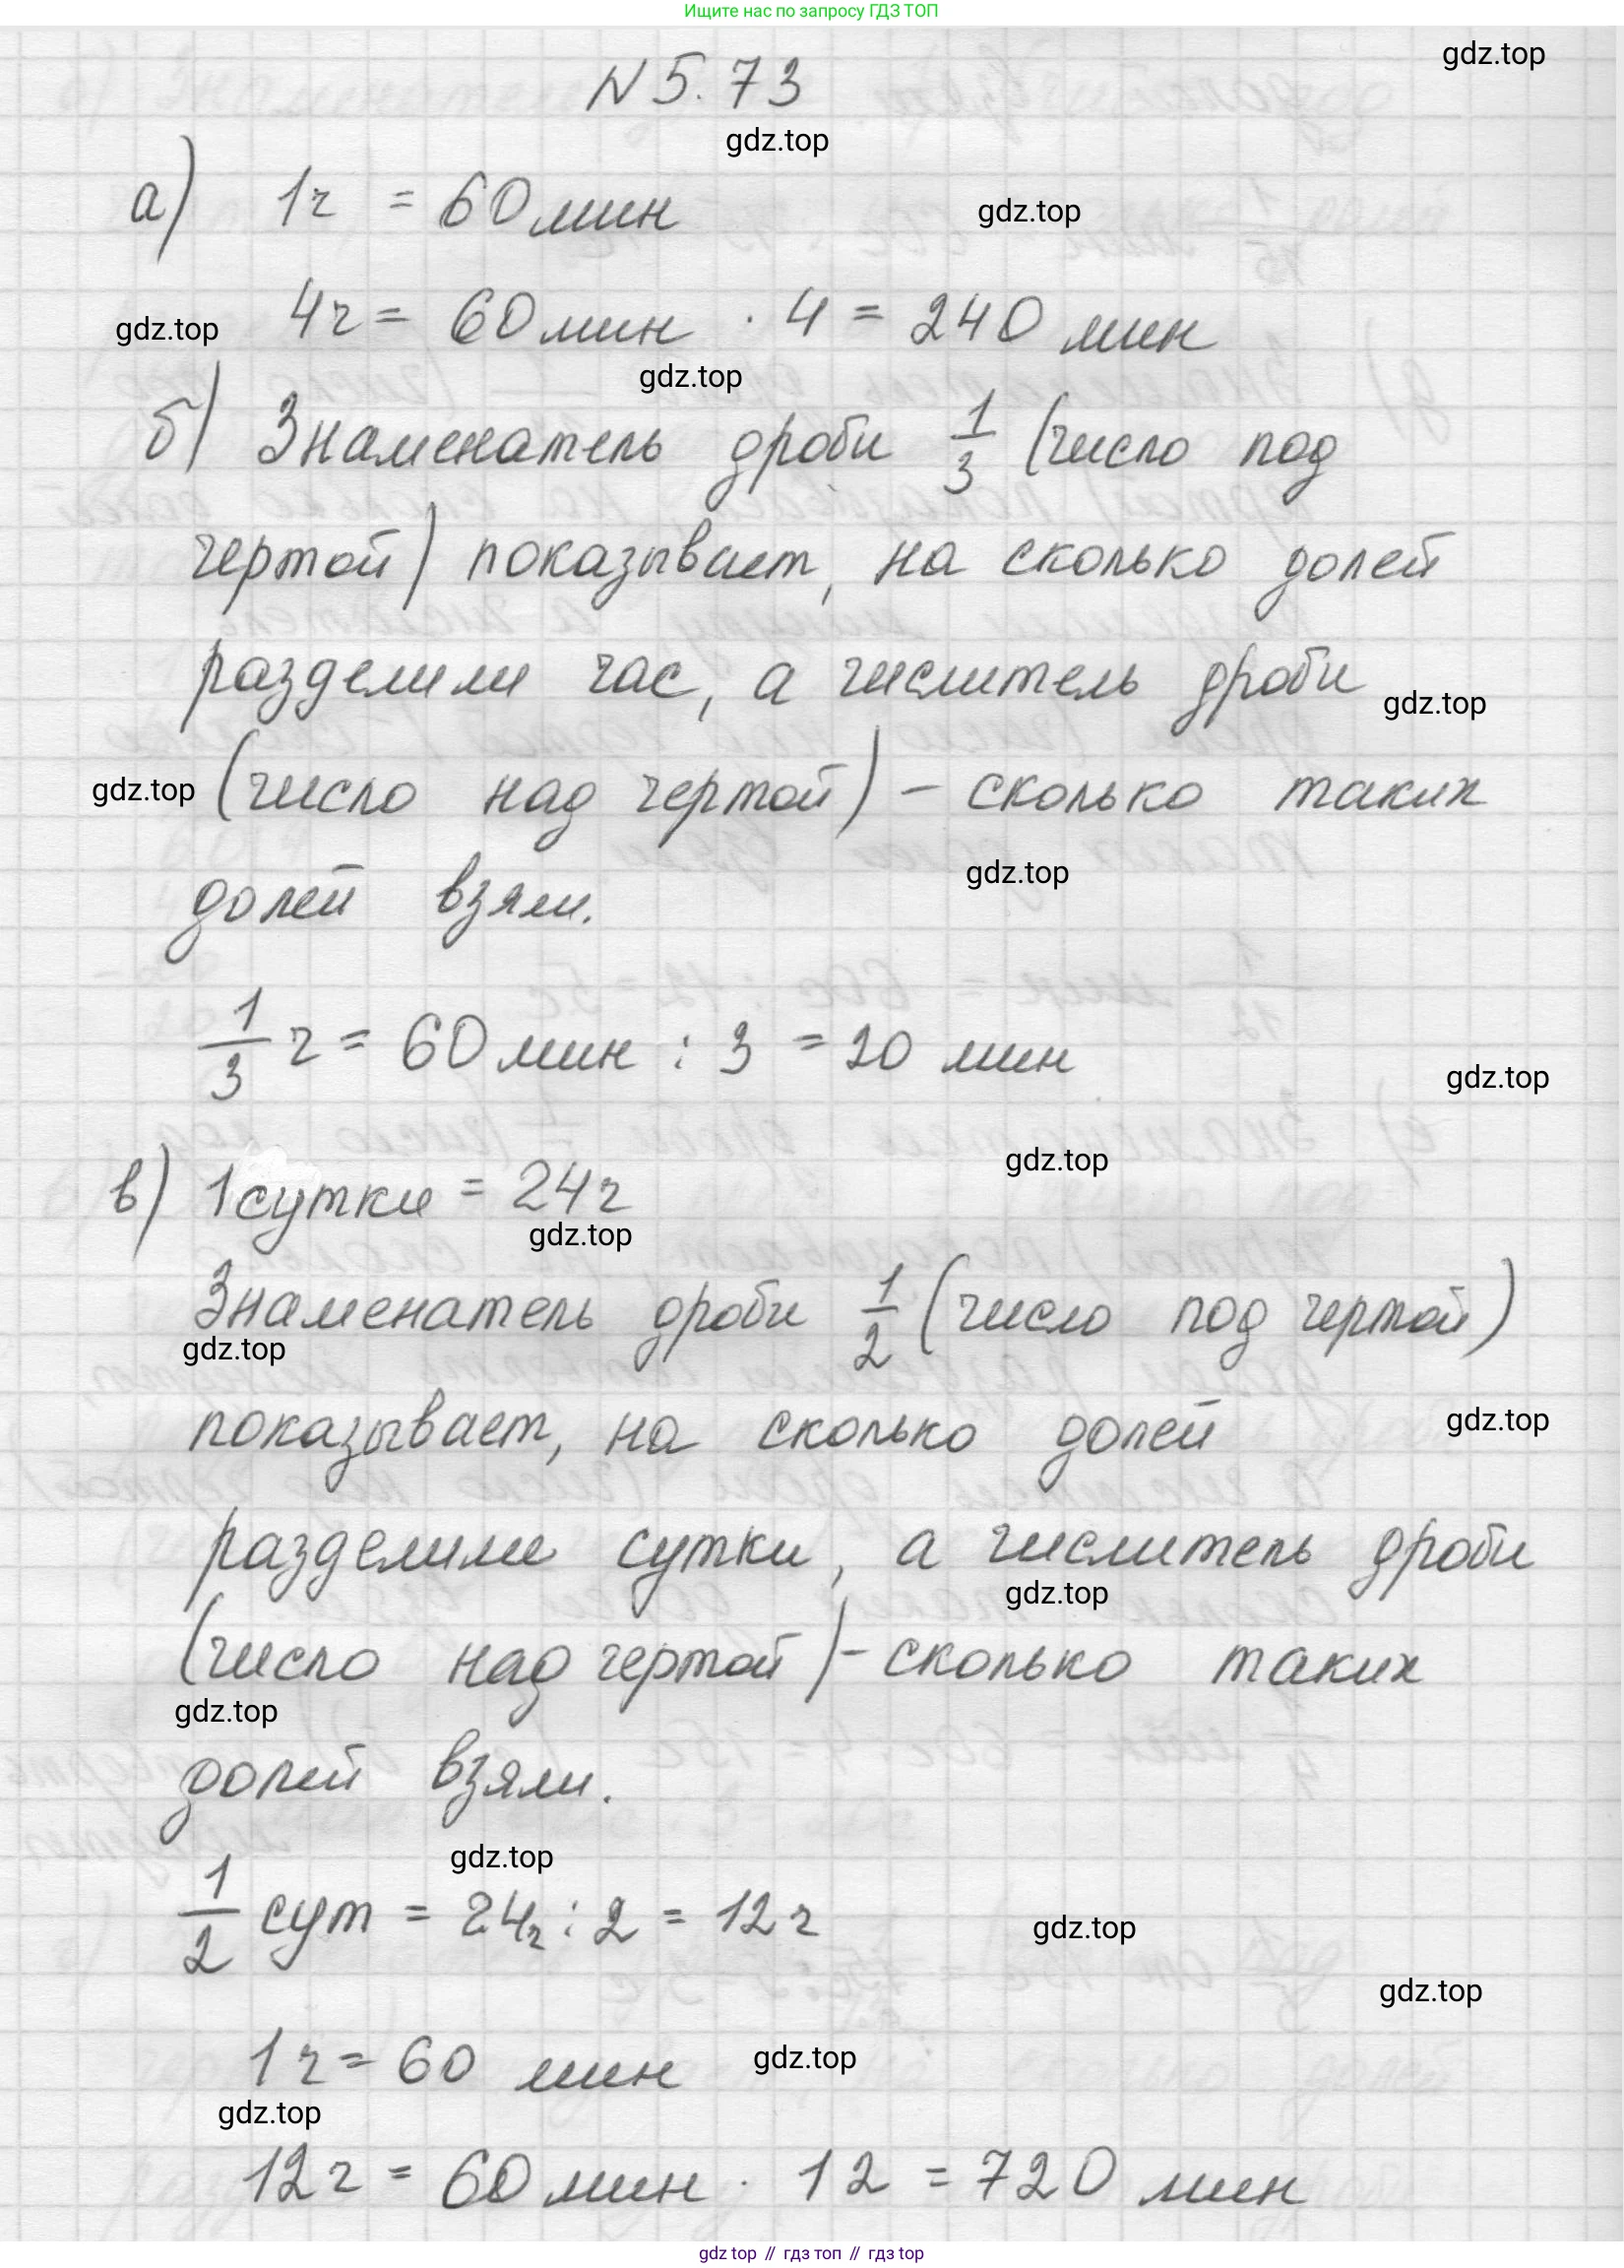 Ищите нас по запросу ГДЗ ТОП
gdz.top
N 5.73
gdz.top
а) 1ч = 60 мин
gdz.top
gdz.top
4ч = 60 мин · 4 = 240 мин
gdz.top
б) Знаменатель дроби 1/3 (число под
чертой) показывает, на сколько долей
разделили час, а числитель дроби
gdz.top
gdz.top
(число над чертой) – сколько таких
gdz.top
долей взяли.
1/3 ч = 60 мин : 3 = 20 мин
gdz.top
gdz.top
в) 1 сутки = 24 ч
gdz.top
Знаменатель дроби 1/2 (число под чертой)
gdz.top
показывает, на сколько долей
gdz.top
разделили сутки, а числитель дроби
gdz.top
(число над чертой) – сколько таких
gdz.top
долей взяли.
gdz.top
1/2 сут = 24ч : 2 = 12 ч
gdz.top
gdz.top
1 ч = 60 мин
gdz.top
gdz.top
12 ч = 60 мин · 12 = 720 мин
gdz top // гдз топ // gdz top